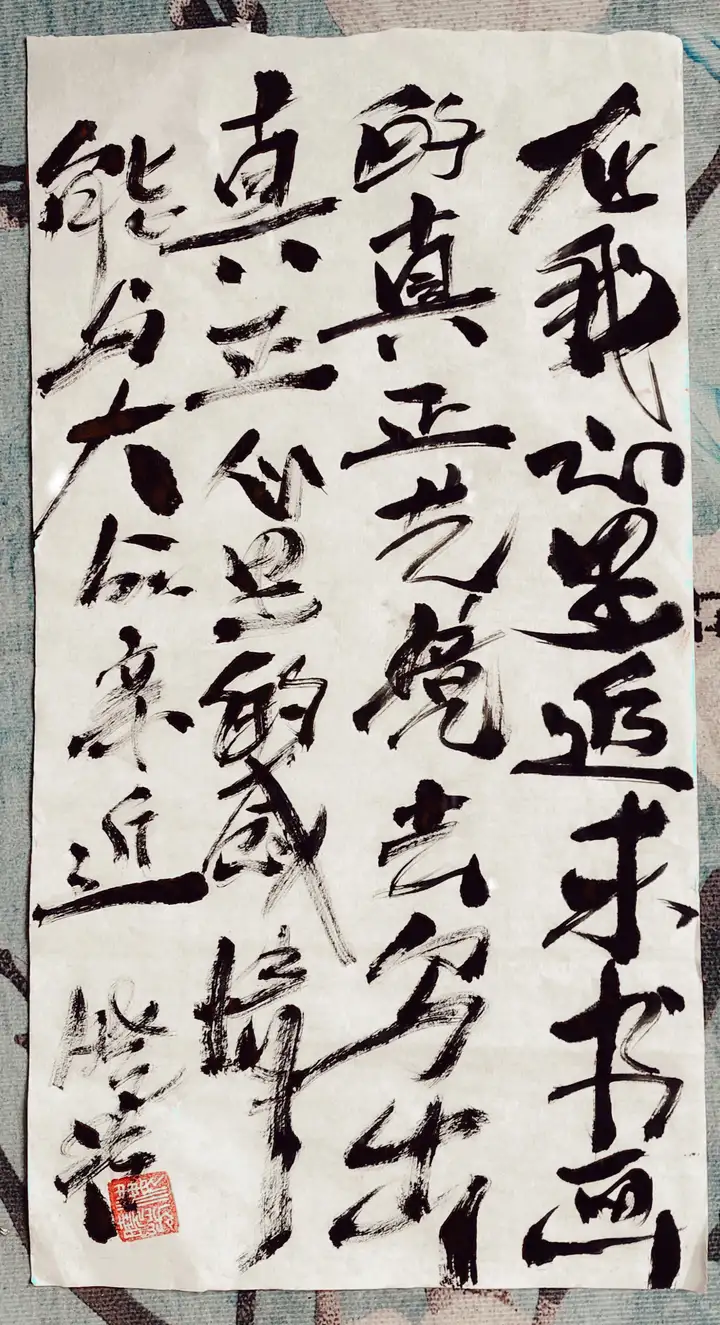 在我心里追求书画
的真正艺境去写出
真正心里的感情
能与大众亲近